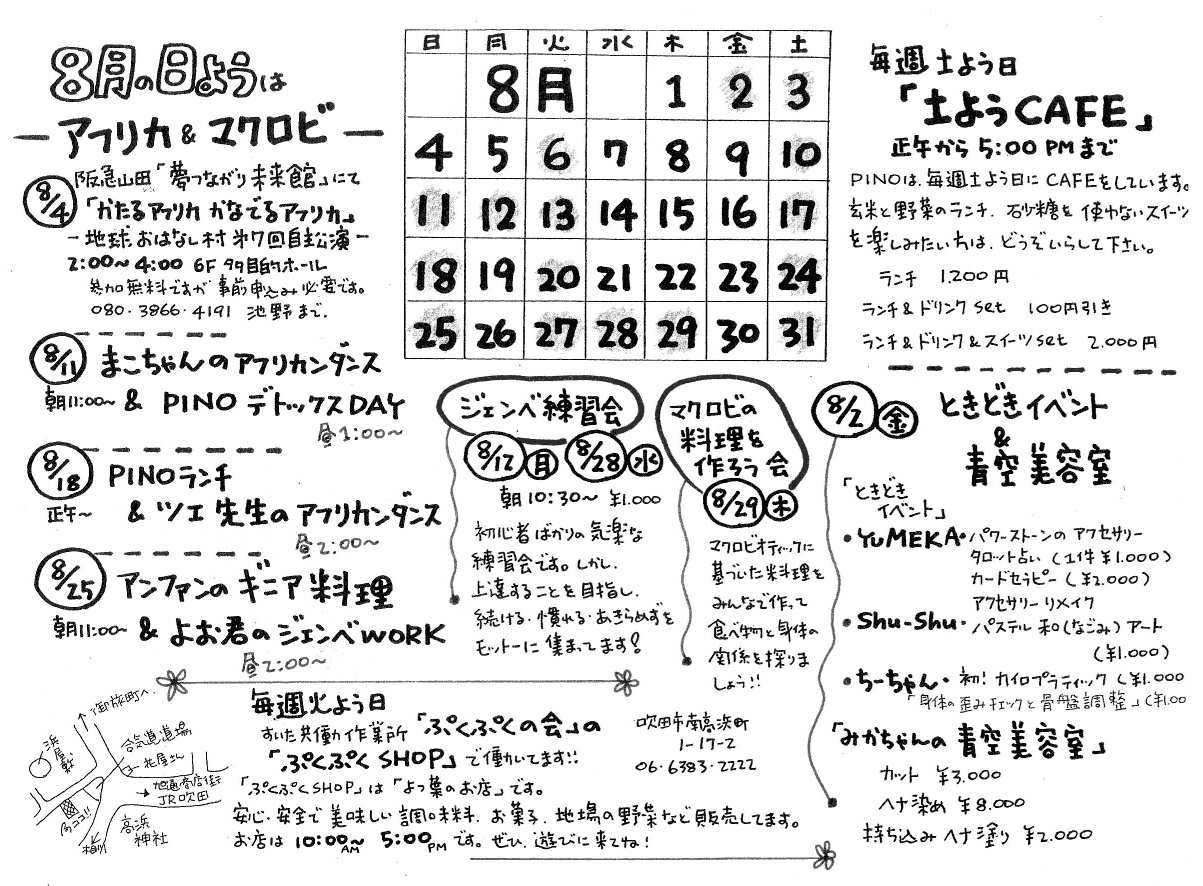 8月の日ようは
アフリカ & マクロビ
8/4
阪急山田「夢つながり未来館」にて
「かたるアフリカ かなでるアフリカ」
- 地球おはなし村 第7回自主公演 -
2:00~4:00 6F 多目的ホール
参加無料ですが 事前申込み必要です。
080・3866・4191 池野まで.
8/11 まこちゃんのアフリカンダンス
朝11:00~ & PINO デトックスDAY
昼1:00~
8/18 PINOランチ
正午~ & ツエ先生のアフリカンダンス
昼2:00~
8/25 アンファンのギニア料理
朝11:00~ & よお君のジェンベWORK
昼2:00~
日 月 火 水 木 金 土
8月 1 2 3
4 5 6 7 8 9 10
11 12 13 14 15 16 17
18 19 20 21 22 23 24
25 26 27 28 29 30 31
毎週土よう日
「土ようCAFE」
正午から 5:00 PMまで
PINOは、毎週土よう日に CAFEをしています。
玄米と野菜のランチ、砂糖を使わないスイーツ
を楽しみたい方は、どうぞいらして下さい。
ランチ 1.200円
ランチ&ドリンク set 100円引き
ランチ&ドリンク&スイーツ set 2.000円
ジェンベ練習会
8/12 月 8/28 水
朝10:30~ ¥1.000
初心者ばかりの気楽な
練習会です。しかし、
上達することを目指し、
続ける・慣れる・あきらめずを
モットーに集まってます!
マクロビの
料理を
作ろう会
8/29 木
マクロビオティックに
基づいた料理を
みんなで作って
食べ物と身体の
関係を探りま
しょう!!
8/2 金 ときどきイベント
&
青空美容室
「ときどき
イベント」
・YuMEKA・パワーストーンのアクセサリー
タロット占い (1件¥1.000)
カードセラピー (¥2.000)
アクセサリーリメイク
・Shu-Shu・パステル和(なごみ)アート
(¥1.000)
・ちーちゃん・初!カイロプラティック (¥1.000
「身体の歪みチェックと骨盤調整」(¥1.00
「みかちゃんの青空美容室」
カット ¥3.000
ヘナ染め ¥8.000
持ち込みヘナ塗り ¥2.000
毎週火よう日
すいた共働作業所「ぷくぷくの会」の
「ぷくぷくSHOP」で働いてます!!
「ぷくぷくSHOP」は「よつ葉のお店」です。
安心・安全で美味しい調味料、お菓子、地場の野菜など販売してます。
お店は 10:00AM 5:00PM です。ぜひ、遊びに来てね!
吹田市南高浜町
1-17-2
06・6383・2222
御旅町へ
合気道道場
花屋さん
旭通商店街
JR吹田
浜屋敷
ココ!!
高浜
神社
相川